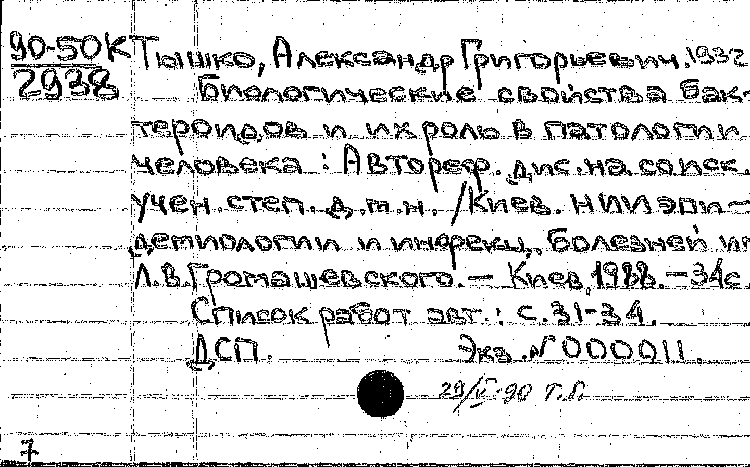 90-50К Тышко, Александр Григорьевич. 1932
2938 Биологические свойства бак-
тероидов и их роль в патологии
человека : Автореф. дис. на соиск.
учен. степ. д.м.н. /Киев. НИИ эпи-
демиологии и инфекц. болезней им
Л.В. Громашевского. — Киев, 1988. — 34с
Список работ авт.: с. 31-34.
ДСП. Экз. № 000011.
29/V-90 Т.Г.
7